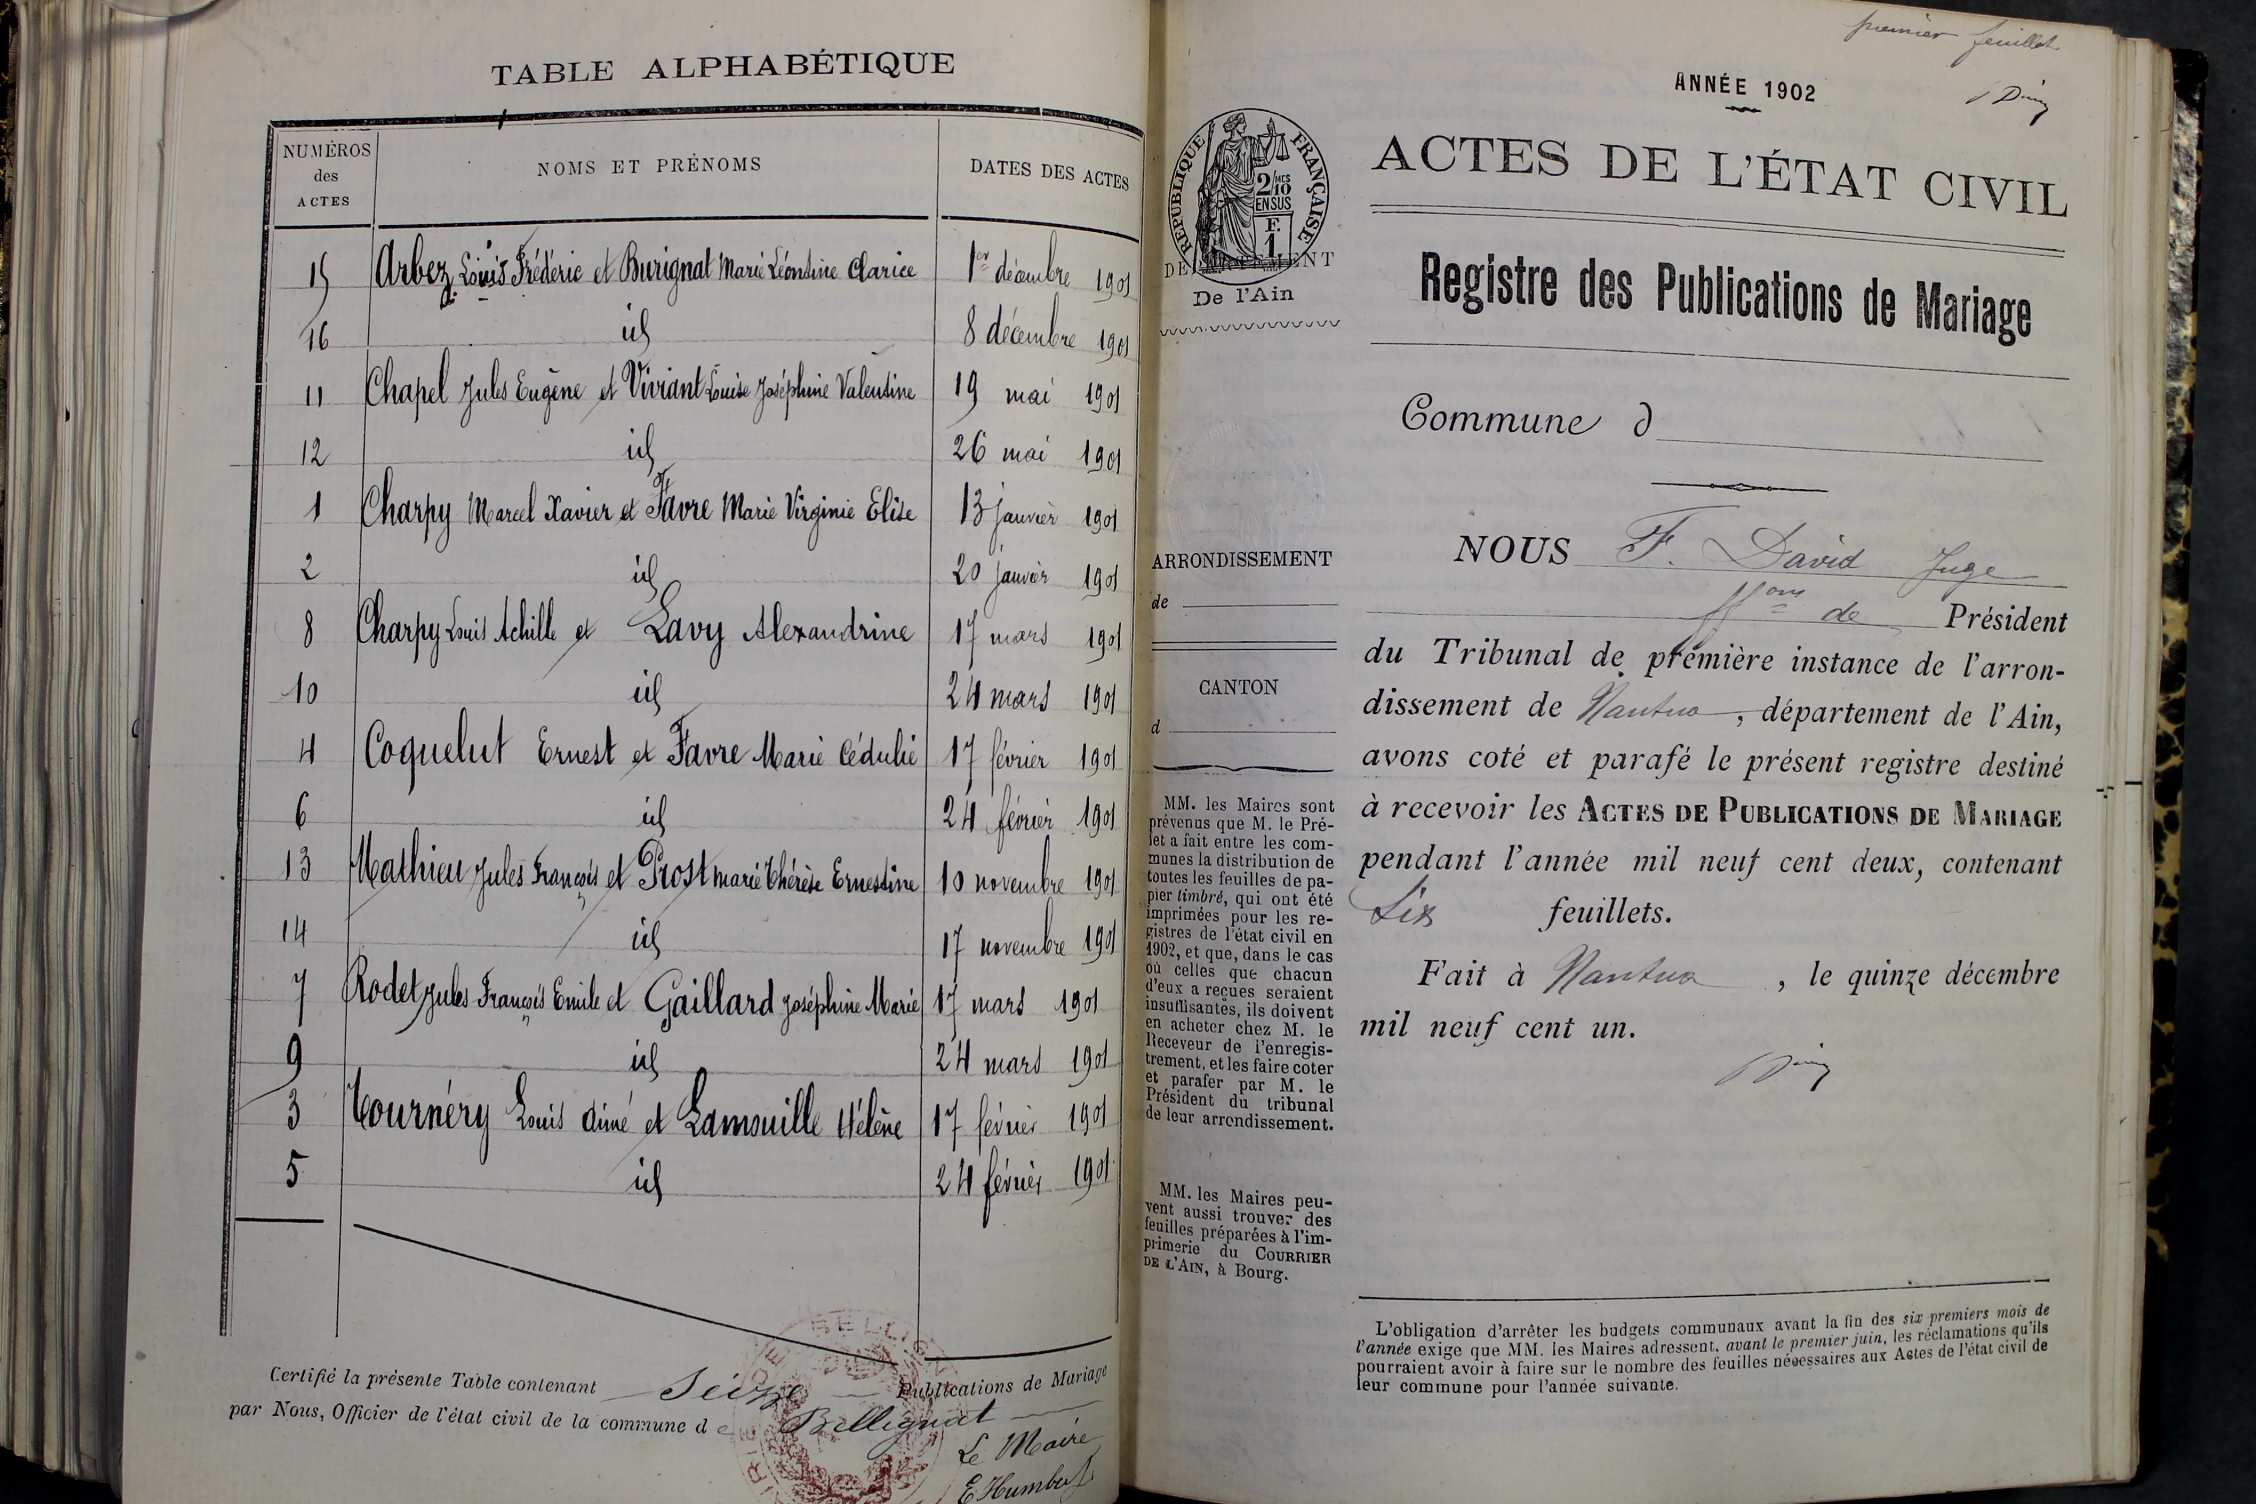 TABLE ALPHABÉTIQUE
NUMÉROS des ACTES NOMS ET PRÉNOMS DATES DES ACTES
15 Arbez Louis Frédéric et Burignat Marie Léontine Clarice 1er décembre 1901
16 id 8 décembre 1901
11 Chapel Jules Eugène et Viviant Louise Joséphine Valentine 19 mai 1901
12 id 26 mai 1901
1 Charpy Marcel Xavier et Favre Marie Virginie Elise 13 janvier 1901
2 id 20 janvier 1901
8 Charpy Louis Achille et Lavy Alexandrine 17 mars 1901
10 id 24 mars 1901
4 Coquelut Ernest et Favre Marie Cédulie 17 février 1901
6 id 24 février 1901
13 Mathieu Jules François et Prost Marie Thérèse Ernestine 10 novembre 1901
14 id 17 novembre 1901
7 Rodet Jules François Emile et Gaillard Joséphine Marie 17 mars 1901
9 id 24 mars 1901
3 Tournéry Louis Aimé et Lamouille Hélène 17 février 1901
5 id 24 février 1901
Certifié la présente Table contenant Seize Publications de Mariage
par Nous, Officier de l'état civil de la commune de Bellignat
Le Maire
E Humbert
premier feuillet
ANNÉE 1902
RÉPUBLIQUE FRANÇAISE
2/10 MES
EN SUS
F.
1
DÉPARTEMENT
De l'Ain
ACTES DE L'ÉTAT CIVIL
Registre des Publications de Mariage
Commune d
ARRONDISSEMENT
de
CANTON
d
MM. les Maires sont
prévenus que M. le Pré-
fet a fait entre les com-
munes la distribution de
toutes les feuilles de pa-
pier timbré, qui ont été
imprimées pour les re-
gistres de l'état civil en
1902, et que, dans le cas
où celles que chacun
d'eux a reçues seraient
insuffisantes, ils doivent
en acheter chez M. le
Receveur de l'enregis-
trement, et les faire coter
et parafer par M. le
Président du tribunal
de leur arrondissement.
MM. les Maires peu-
vent aussi trouver des
feuilles préparées à l'im-
primerie du COURRIER
DE L'AIN, à Bourg.
NOUS F. David Juge
ffons de Président
du Tribunal de première instance de l'arron-
dissement de Nantua, département de l'Ain,
avons coté et parafé le présent registre destiné
à recevoir les ACTES DE PUBLICATIONS DE MARIAGE
pendant l'année mil neuf cent deux, contenant
Six feuillets.
Fait à Nantua, le quinze décembre
mil neuf cent un.
L'obligation d'arrêter les budgets communaux avant la fin des six premiers mois de
l'année exige que MM. les Maires adressent, avant le premier juin, les réclamations qu'ils
pourraient avoir à faire sur le nombre des feuilles nécessaires aux Actes de l'état civil de
leur commune pour l'année suivante.